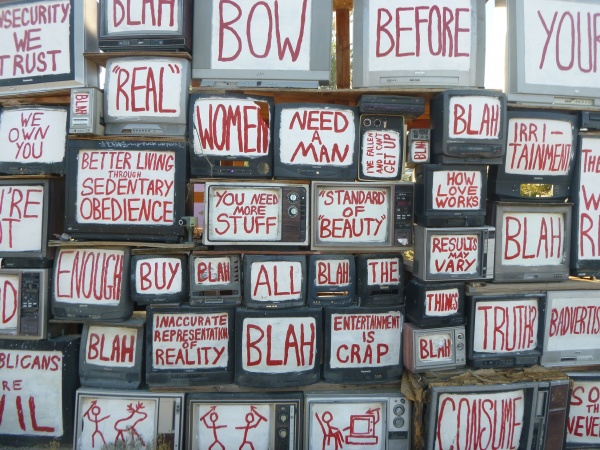 NSECURITY
WE
TRUST
BLAH
BOW
BEFORE
YOUR
"REAL"
BLAH
WE
OWN
YOU
WOMEN
NEED
A
MAN
I'VE FALLEN
AND I CAN'T
GET UP
BLAH
BLAH
IRRI-
TAINMENT
BETTER LIVING
THROUGH
SEDENTARY
OBEDIENCE
YOU NEED
MORE
STUFF
"STANDARD
OF
BEAUTY"
HOW
LOVE
WORKS
RESULTS
MAY
VARY
BLAH
ENOUGH
BUY
BLAH
ALL
BLAH
THE
THINGS
BLAH
INACCURATE
REPRESENTATION
OF
REALITY
BLAH
ENTERTAINMENT
IS
CRAP
BLAH
TRUTH
BADVERTIS
BLICANS
RE
VIL
CONSUME
SO
THI
NEVER